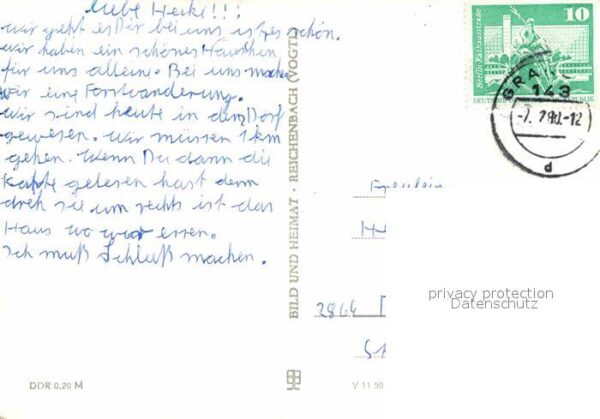 Liebe Heike!!!
wie geht es Dir bei uns ist es schön.
wir haben ein schönes Häuschen
für uns alleine. Bei uns machen
wir eine Forstwanderung.
wir sind heute in dem Dorf
gewesen. wir müssen 1km
gehen. Wenn Du dann die
Kapte gelesen hast denn
dreh sie um rechts ist das
Haus wo wir essen.
ich muß Schluß machen.
BILD UND HEIMAT · REICHENBACH (VOGTL)
10
Berlin-Rathausstraße
143
d
Fräulein
H
privacy protection
Datenschutz
DDR 0,20 M
V 11 50